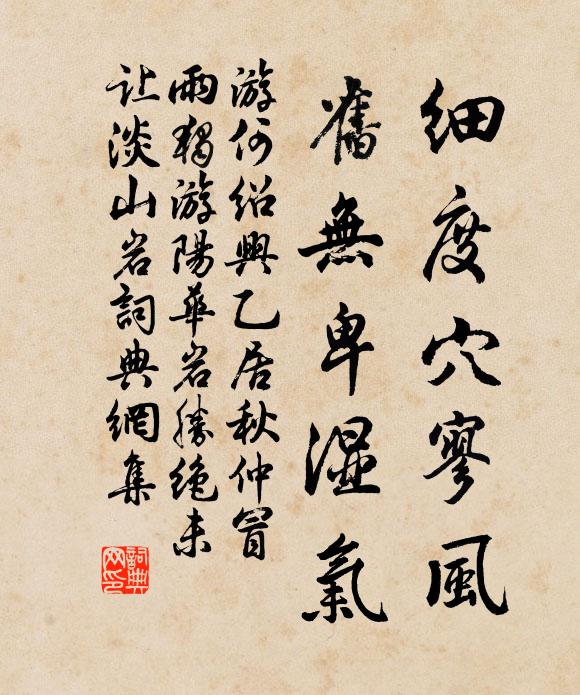 細度穴寥風
舊無卑濕氣
游何紹興乙居秋仲冒
雨獨游陽華岩勝絶未
让淡山岩詞典網集
詞典网印